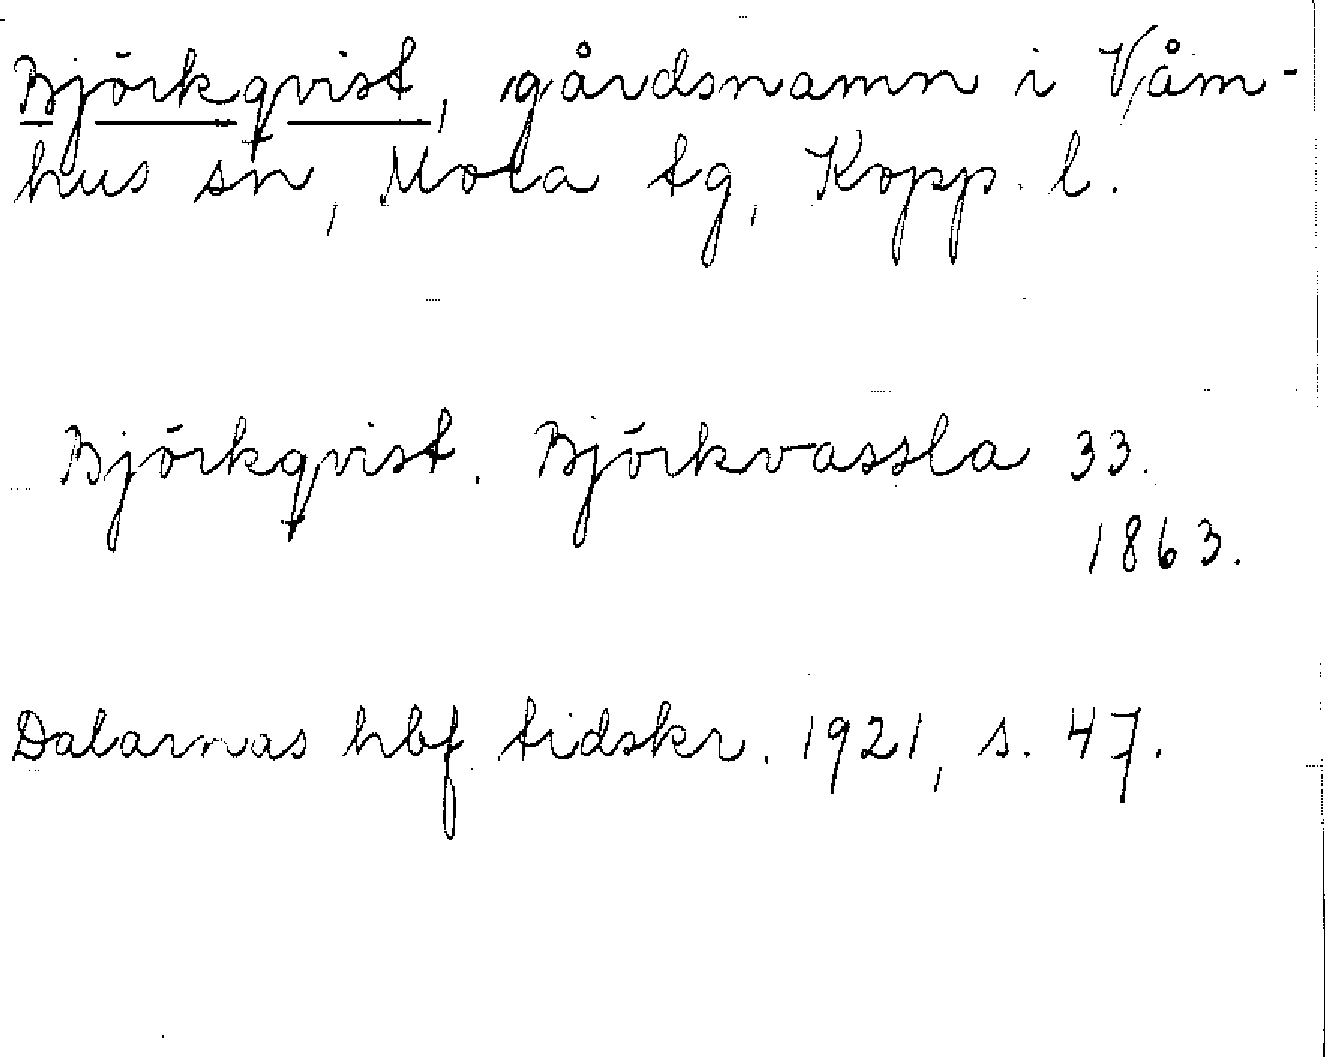 Björkqvist, gårdsnamn i Våm-
hus sn, Mora tg, Kopp. l.
Björkqvist. Björkvassla 33.
1863.
Dalarnas hbf. tidskr. 1921, s. 47.